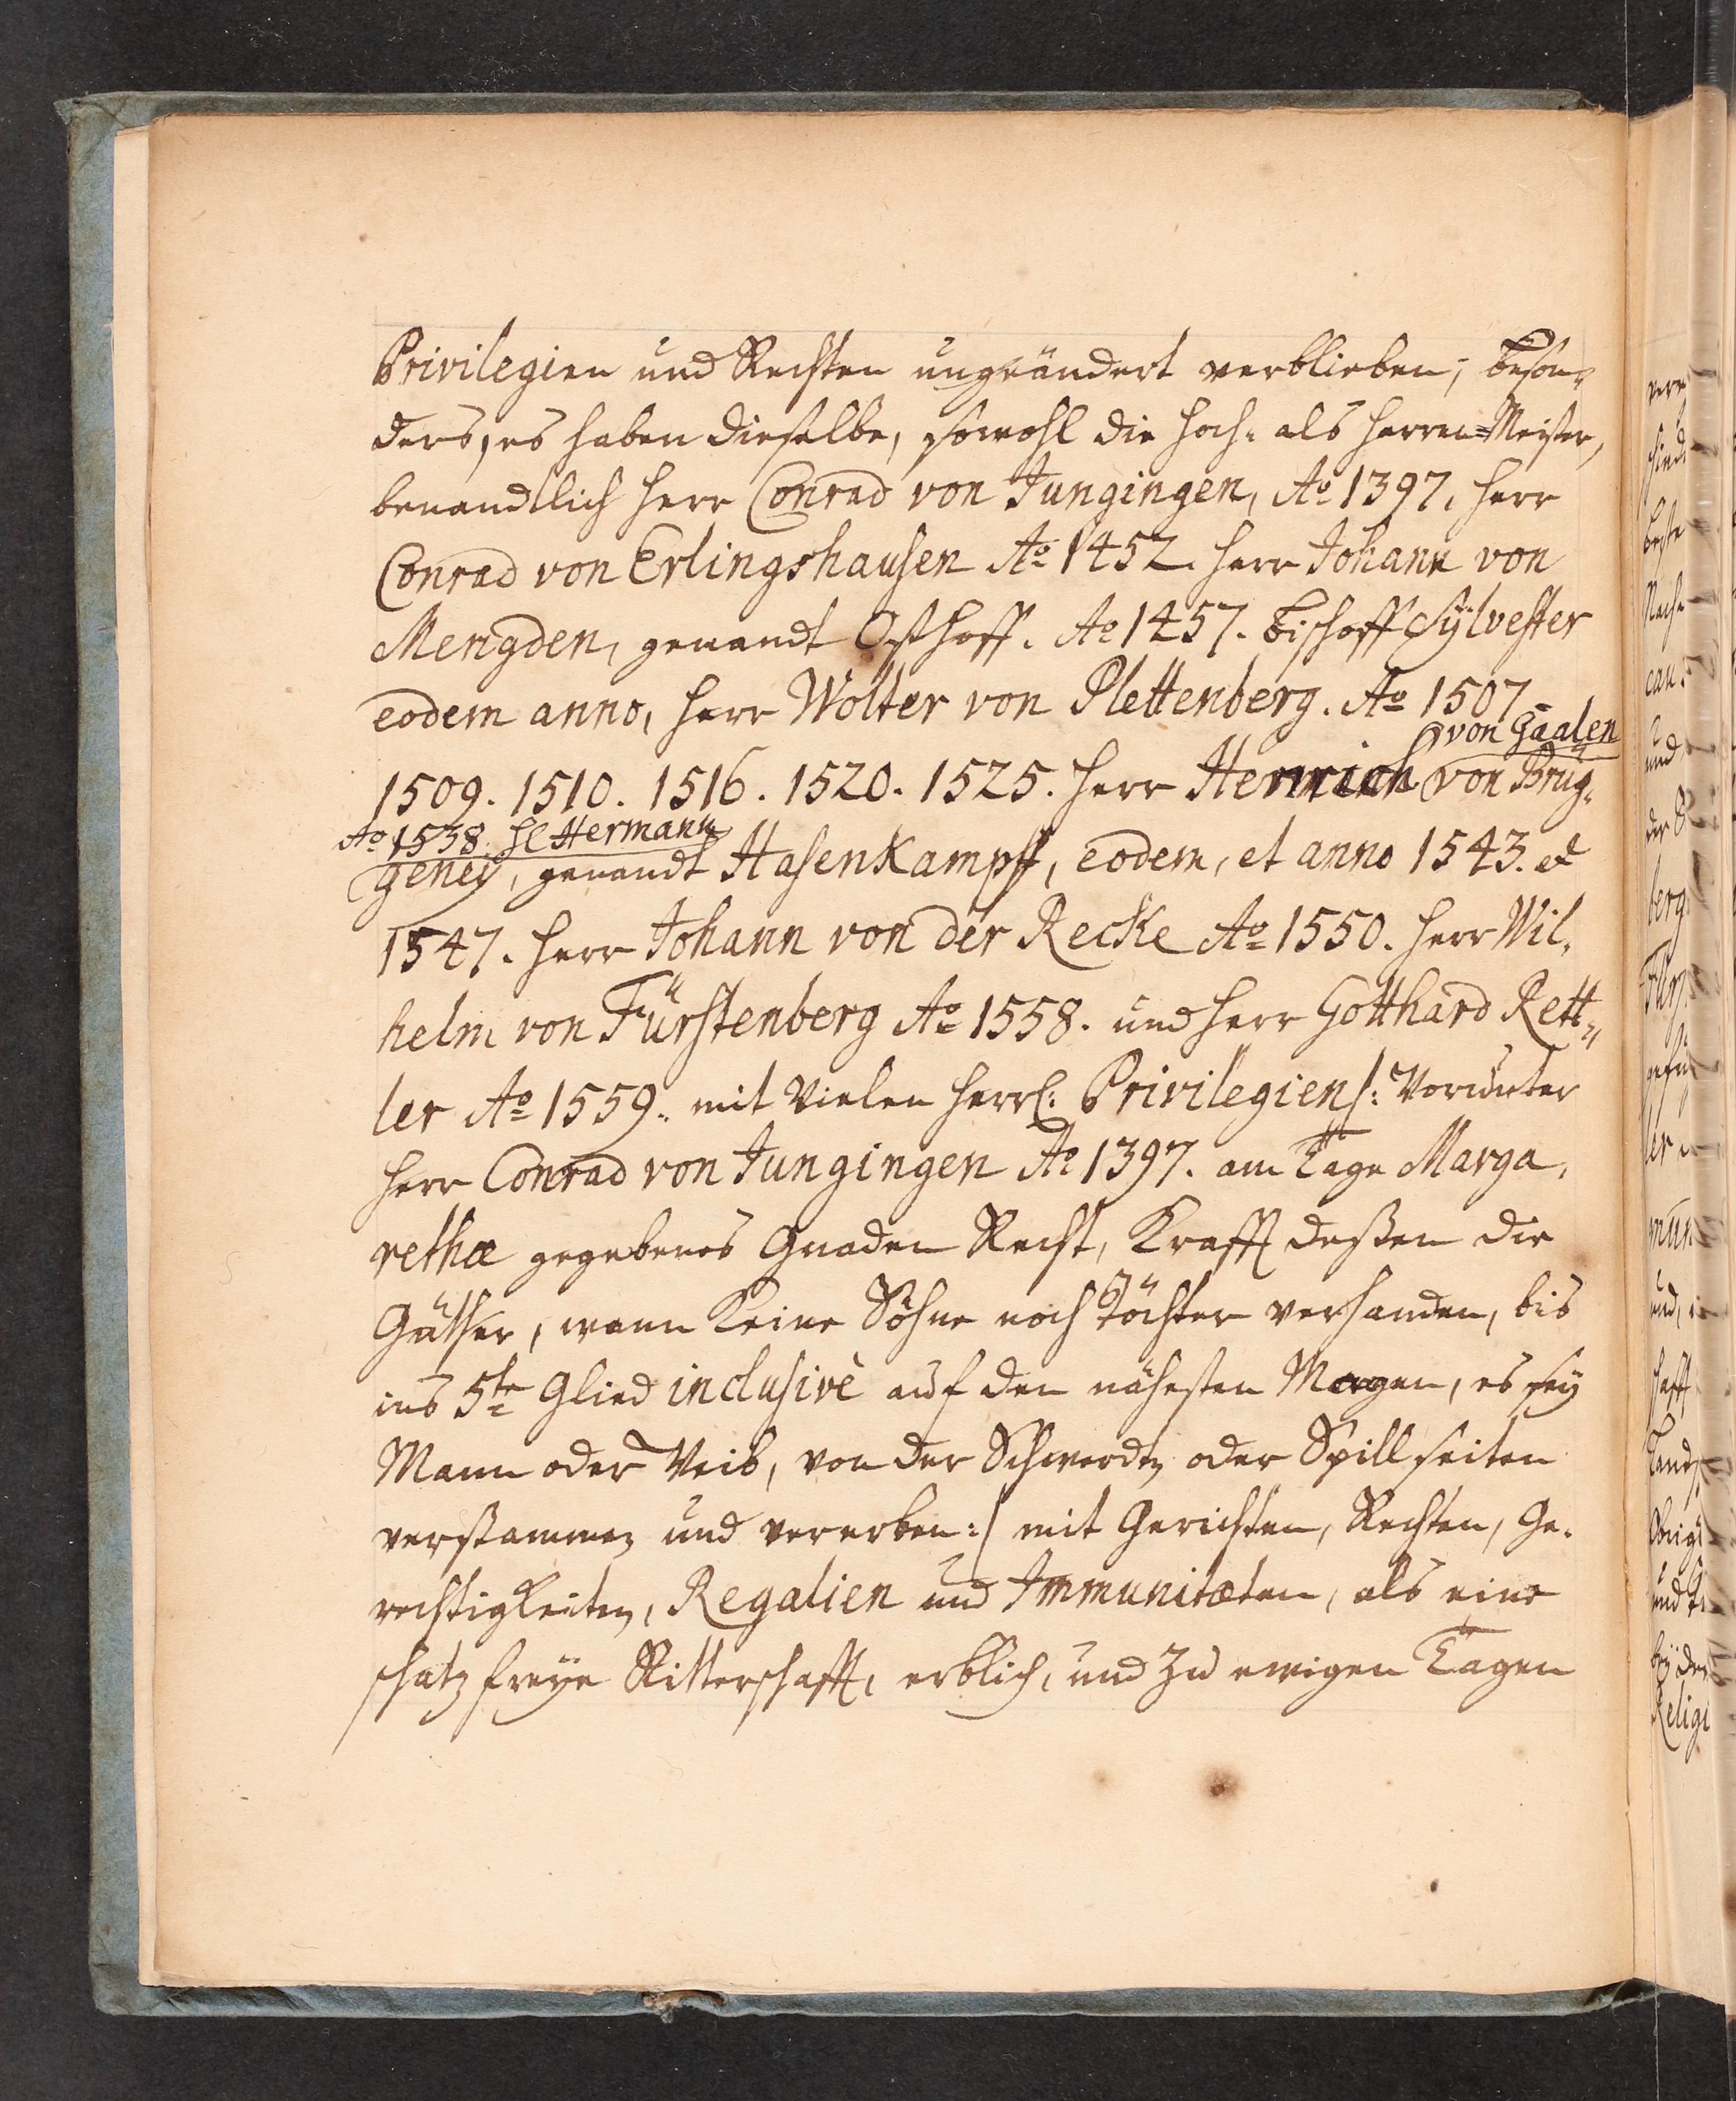 Privilegien und Rechten ungeändert verblieben; beson=
ders, es haben dieselbe, sowohl die Hoch= als Herren=Meister,
benandtlich Herr Conrad von Jungingen, Ao 1397. Herr
Conrad von Erlingshausen Ao 1452. Herr Johann von
Mengden, genandt Osthoff. Ao 1457. Bischoff Sylvester
eodem anno, Herr Wolter von Plettenberg. Ao 1507.
von Gaalen
1509. 1510. 1516. 1520. 1525. Herr Henrich von Brüg=
Ao 1538. H. Hermann
geney, genandt Hasenkampff, eodem, et anno 1543. et
1547. Herr Johann von der Recke Ao 1550. Herr Wil=
helm von Fürstenberg Ao 1558. und Herr Gotthard Kett=
ler Ao 1559. mit Vielen Herrl: Privilegien /: Worunter
Herr Conrad von Jungingen Ao 1397. am Tage Marga=
rethæ gegebenes Gnaden Recht, Krafft deßen die
Güther, wann keine Söhne noch Töchter verhanden, bis
ins 5te Glied inclusivè auf den nähesten Magen, es sey
Mann oder Weib, von der Schwerdt oder Spill seiten
verstammen und vererben :/ mit Gerichten, Rechten, Ge=
rechtigkeiten, Regalien und Immunitæten, als eine
schatz freye Ritterschafft, erblich, und zu ewigen Tagen